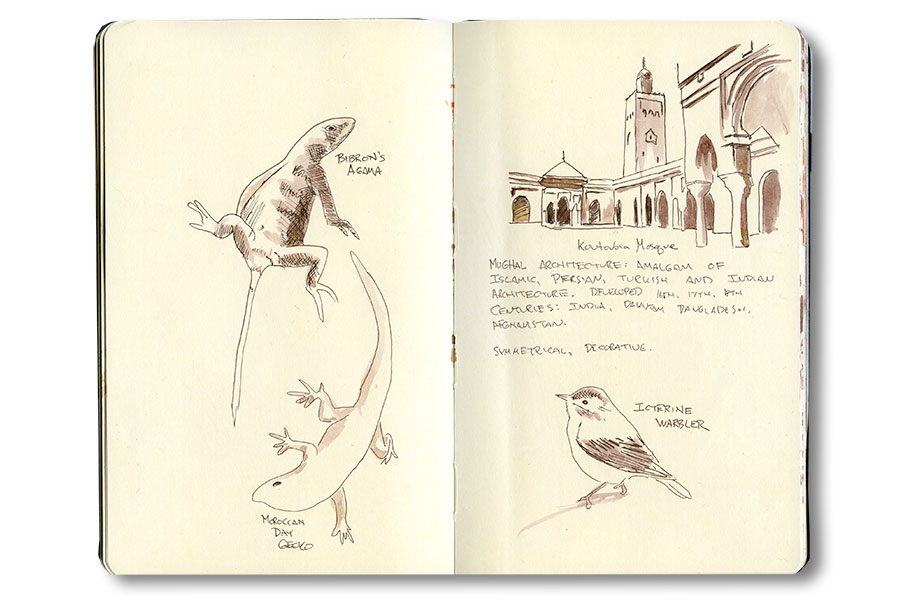 BIBRON'S
AGAMA
MOROCCAN
DAY
GECKO
Koutoubia Mosque
MUGHAL ARCHITECTURE: AMALGAM OF
ISLAMIC, PERSIAN, TURKISH AND INDIAN
ARCHITECTURE. DEVELOPED 16TH, 17TH, 18TH
CENTURIES: INDIA, BANGLADESH,
AFGHANISTAN.
SYMMETRICAL, DECORATIVE.
ICTERINE
WARBLER